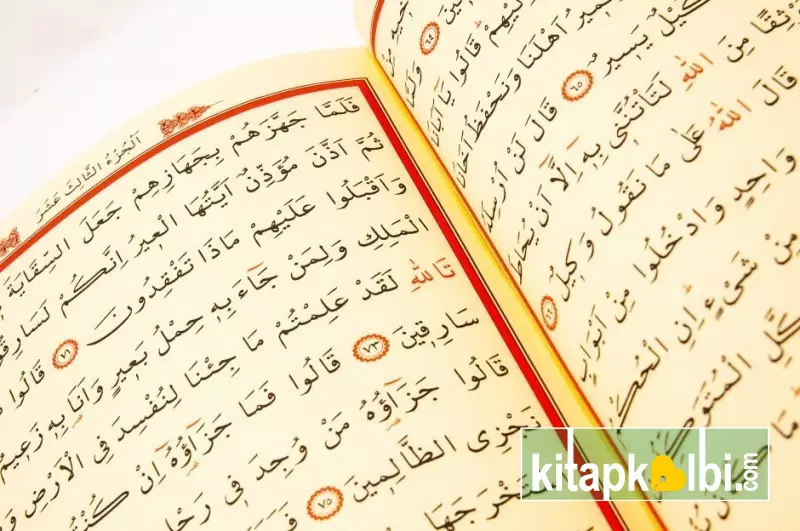 وَلَمَّا ﴿٦٤﴾
اِلَيْهِمْ قَالُوا يَٓا اَبَانَا
نَمِيرُ اَهْلَنَا وَنَحْفَظُ اَخَانَا
كَيْلٌ يَسِيرٌ ﴿٦٥﴾ قَالَ لَنْ اُرْسِلَهُ
مَوْثِقًا مِنَ اللّٰهِ لَتَأْتُنَّنِى بِهِٓ اِلَّٓا اَنْ يُحَاطَ
قَالَ اللّٰهُ عَلٰى مَا نَقُولُ وَكِيلٌ ﴿٦٦﴾
وَاحِدٍ وَادْخُلُوا مِنْ اَبْوَابٍ
مِنْ شَىْءٍ اِنِ الْحُكْمُ
كَّلِ الْمُتَوَكِّ
مَا كَانَ
اَلْجُزْءُ الثَّالِثَ عَشَرَ
فَلَمَّا جَهَّزَهُمْ بِجَهَازِهِمْ جَعَلَ السِّقَايَةَ
ثُمَّ اَذَّنَ مُؤَذِّنٌ اَيَّتُهَا الْعِيرُ اِنَّكُمْ لَسَارِقُو
وَاَقْبَلُوا عَلَيْهِمْ مَاذَا تَفْقِدُونَ ﴿٧١﴾ قَالُوا
الْمَلِكِ وَلِمَنْ جَٓاءَ بِهِ حِمْلُ بَعِيرٍ وَاَنَا بِهِ زَعِيمٌ
تَاللّٰهِ لَقَدْ عَلِمْتُمْ مَا جِئْنَا لِنُفْسِدَ فِى الْاَرْضِ وَ
سَارِقِينَ ﴿٧٣﴾ قَالُوا فَمَا جَزَٓاؤُهُٓ اِنْ كُنْتُ
قَالُوا جَزَٓاؤُهُ مَنْ وُجِدَ فِى رَحْلِ
نَجْزِى الظَّالِمِينَ ﴿٧٥﴾
اسْتَخْرَجَهَا
kitapkalbi.com